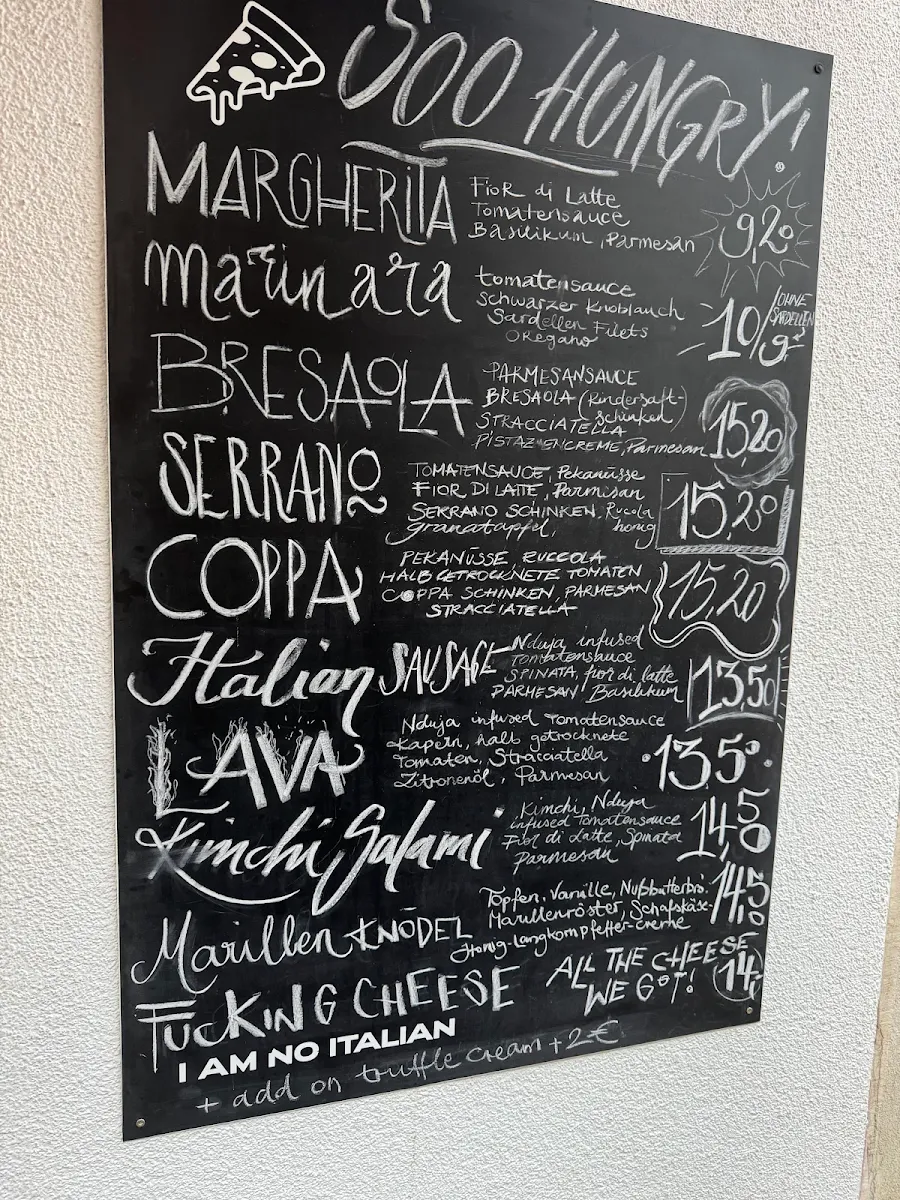 Soo HUNGRY!
MARGHERITA
Fior di Latte
Tomatensauce
Basilikum, Parmesan
9,20
marinara
tomatensauce
schwarzer Knoblauch
Sardellen Filets
Oregano
10/9,-
OHNE
SARDELLEN
BRESAOLA
PARMESANSAUCE
BRESAOLA (Rindersaft-
schinken)
STRACCIATELLA
PISTAZIENCREME, Parmesan
15,20
SERRANO
TOMATENSAUCE, Pekanüsse
FIOR DI LATTE, Parmisan
SERRANO SCHINKEN, Rucola
Granatapfel, honig
15,20
COPPA
PEKANÜSSE, RUCCOLA
HALB GETROCKNETE TOMATEN
COPPA SCHINKEN, PARMESAN
STRACCIATELLA
15,20
Italian SAUSAGE
Nduja infused
Tomatensauce
SPINATA, fior di latte
PARMESAN Basilikum
13,50
LAVA
Nduja infused Tomatensauce
Kapern, halb getrocknete
Tomaten, Stracciatella
Zitronenöl, Parmesan
13,50
Kimchi Salami
Kimchi, Nduja
infused Tomatensauce
Fior di Latte, Spinata
Parmesan
14,50
Marillen KNÖDEL
Topfen, Vanille, Nußbutterbrö.
Marillenröster, Schafskäse-
Honig-Langkornpfeffer-creme
14,50
FUCKING CHEESE
ALL THE CHEESE
WE GOT!
14,-
I AM NO ITALIAN
+ add on truffle cream +2€